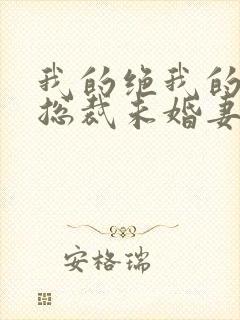 我的绝我的
总裁未婚妻
安格瑞